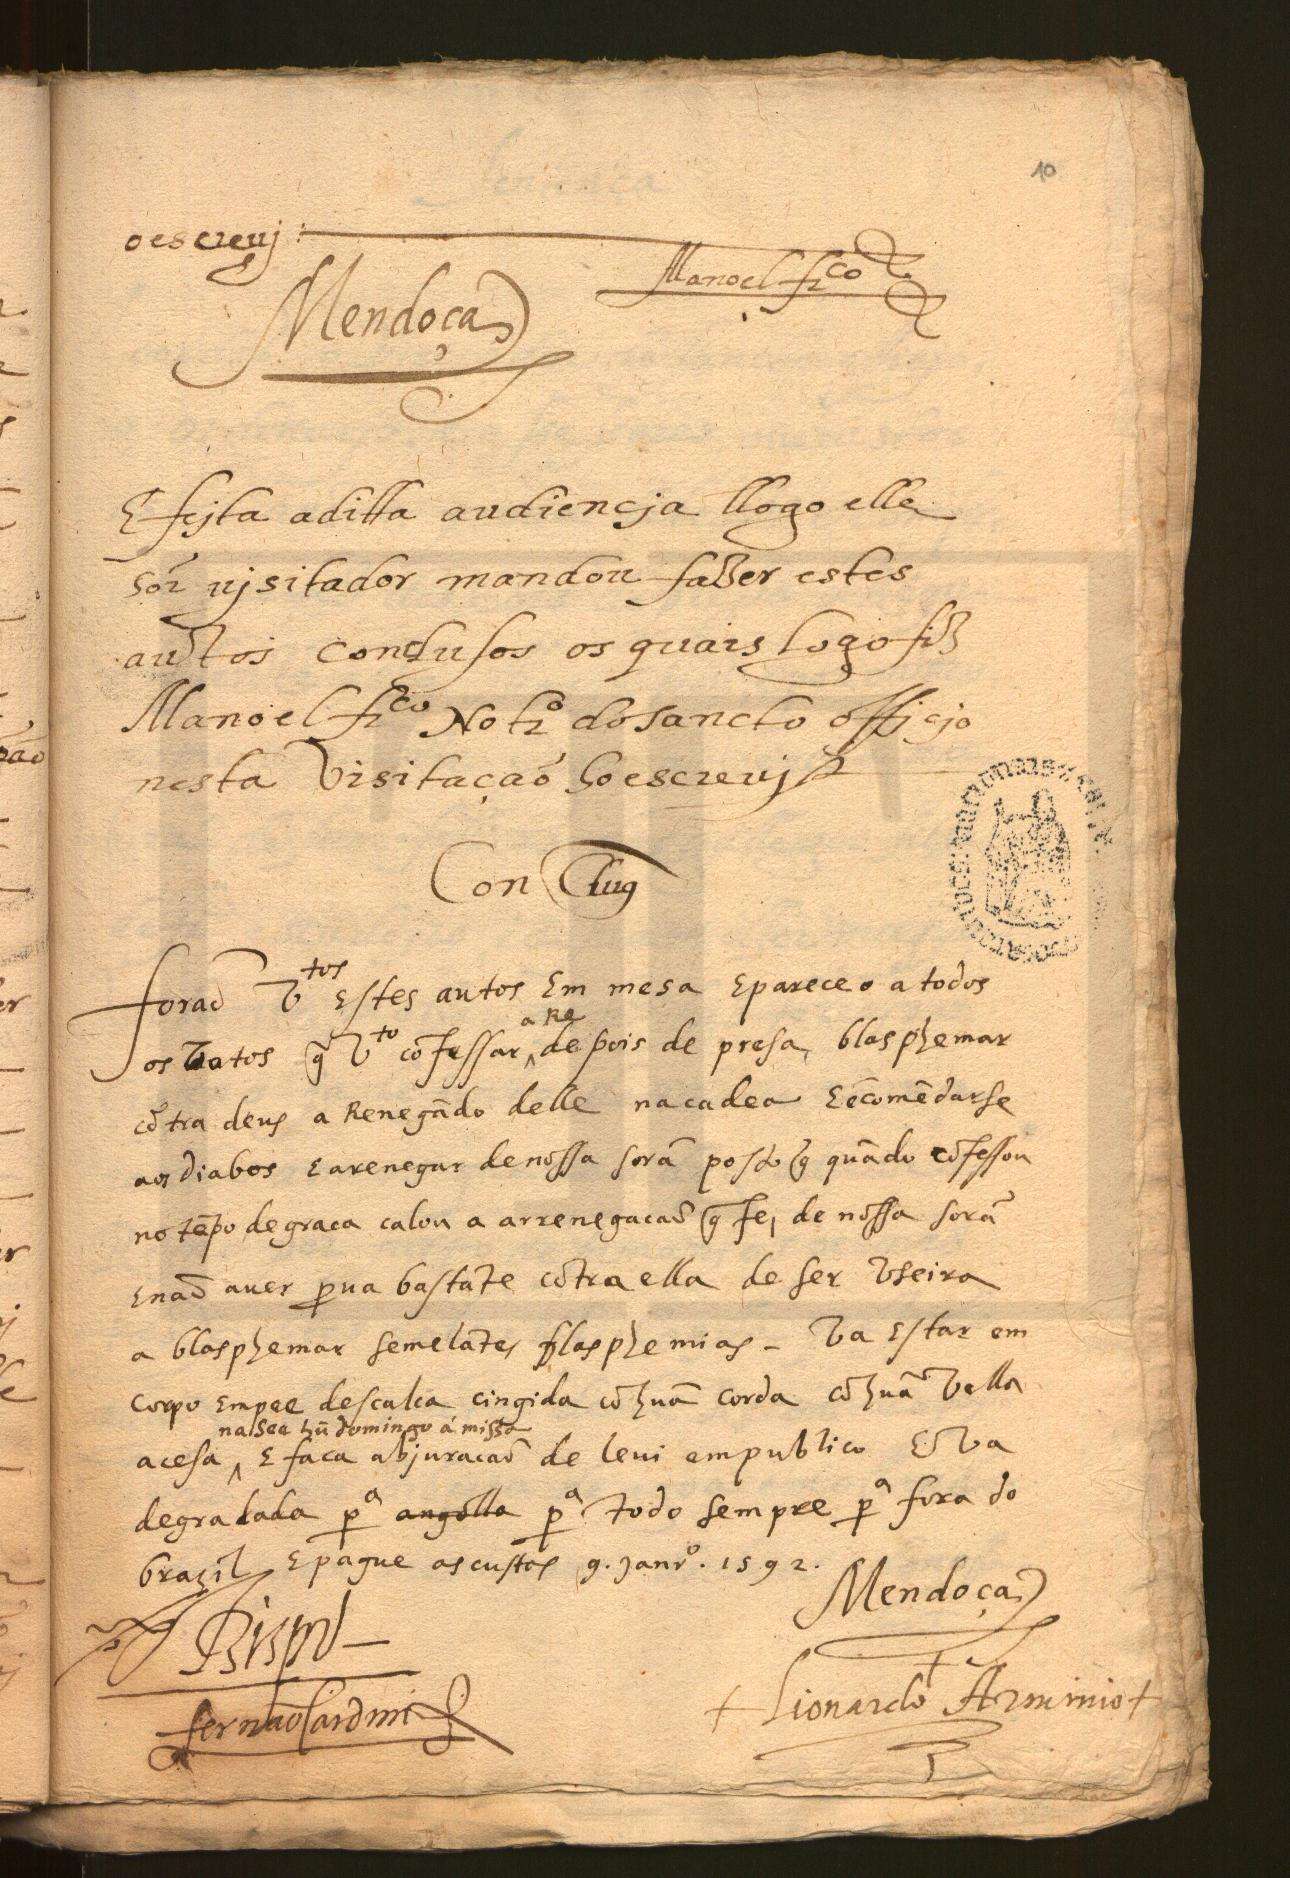 10
o escreuj :
Manoel frco
Mendoça
E fejta a ditta audiencja llogo elle
sõr ujsitador mandou fazer estes
autos conclusos os quais logo fiz
Manoel frco Notrº do sancto officjo
nesta Visitação ho escreuj
Con Clus
forão vtos estes autos Em mesa E pareceo a todos
os votos q̃ vto cõfessar a Re depois de presa, blasphemar
cõtra deus aRenegãdo delle na cadea E ẽcomẽdarse
aos diabos E arenegar de nossa sorã posto q̃ quãdo cõfessou
no tẽpo de graca calou a arrenegacaõ q̃ fez de nossa sorã
E naõ auer prua bastãte cõtra ella de ser vseira
a blasphemar semelãtes blasphemias - va Estar em
corpo Em pee descalca cingida cõ huã corda cõ huã vella
na See hũ domingo á missa
acesa, E faca abjuracaõ de leui em publico E va
degradada pª angolla pª todo sempre pª fora do
brazil E pague as custas 9. Janrº. 1592.
Mendoça
Bispo
fernão Cardim
Lionardo Arminio